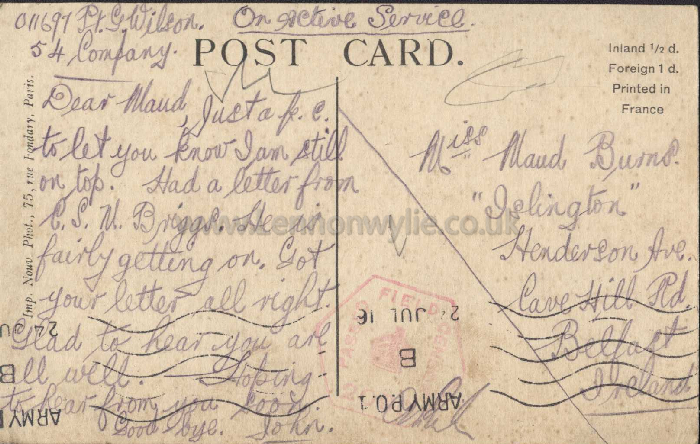 011697 Pt. G. Wilson.
54 Company.
On Active Service.
POST CARD.
Inland ½ d.
Foreign 1 d.
Printed in
France
Dear Maud, Just a p.c.
to let you know I am still
on top. Had a letter from
C.S.M. Briggs. He is
fairly getting on. Got
your letter all right.
Glad to hear you are
all well. Hoping
to hear from you soon.
Good bye. John.
Miss Maud Burns.
"Islington"
Henderson Ave.
Cave Hill Rd
Belfast
Ireland
Imp. Nouv. Phot., 75, rue Fondary, Paris.
www.lennonwylie.co.uk
FIELD
ARMY P.O.1
B
JUL 16
ARMY
B